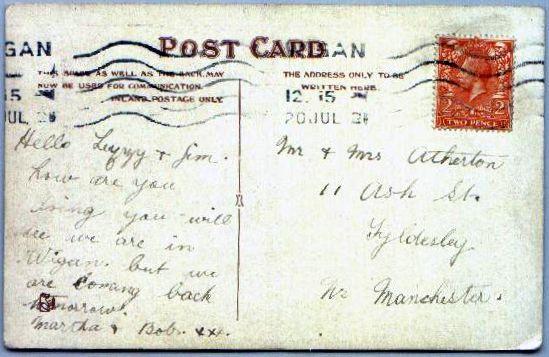 IGAN
15
JUL 2
POST CARD
THIS SPACE AS WELL AS THE BACK MAY
NOW BE USED FOR COMMUNICATION.
INLAND POSTAGE ONLY.
THE ADDRESS ONLY TO BE
WRITTEN HERE.
GAN
12.15
20 JUL 2
2 2
TWO PENCE
Hello Lizzy & Jim.
how are you
going you will
see we are in
Wigan. but we
are coming back
tomorrow.
Martha & Bob. xxx.
Mr & Mrs Atherton
11 Ash St.
Tyldesley
Nr Manchester.